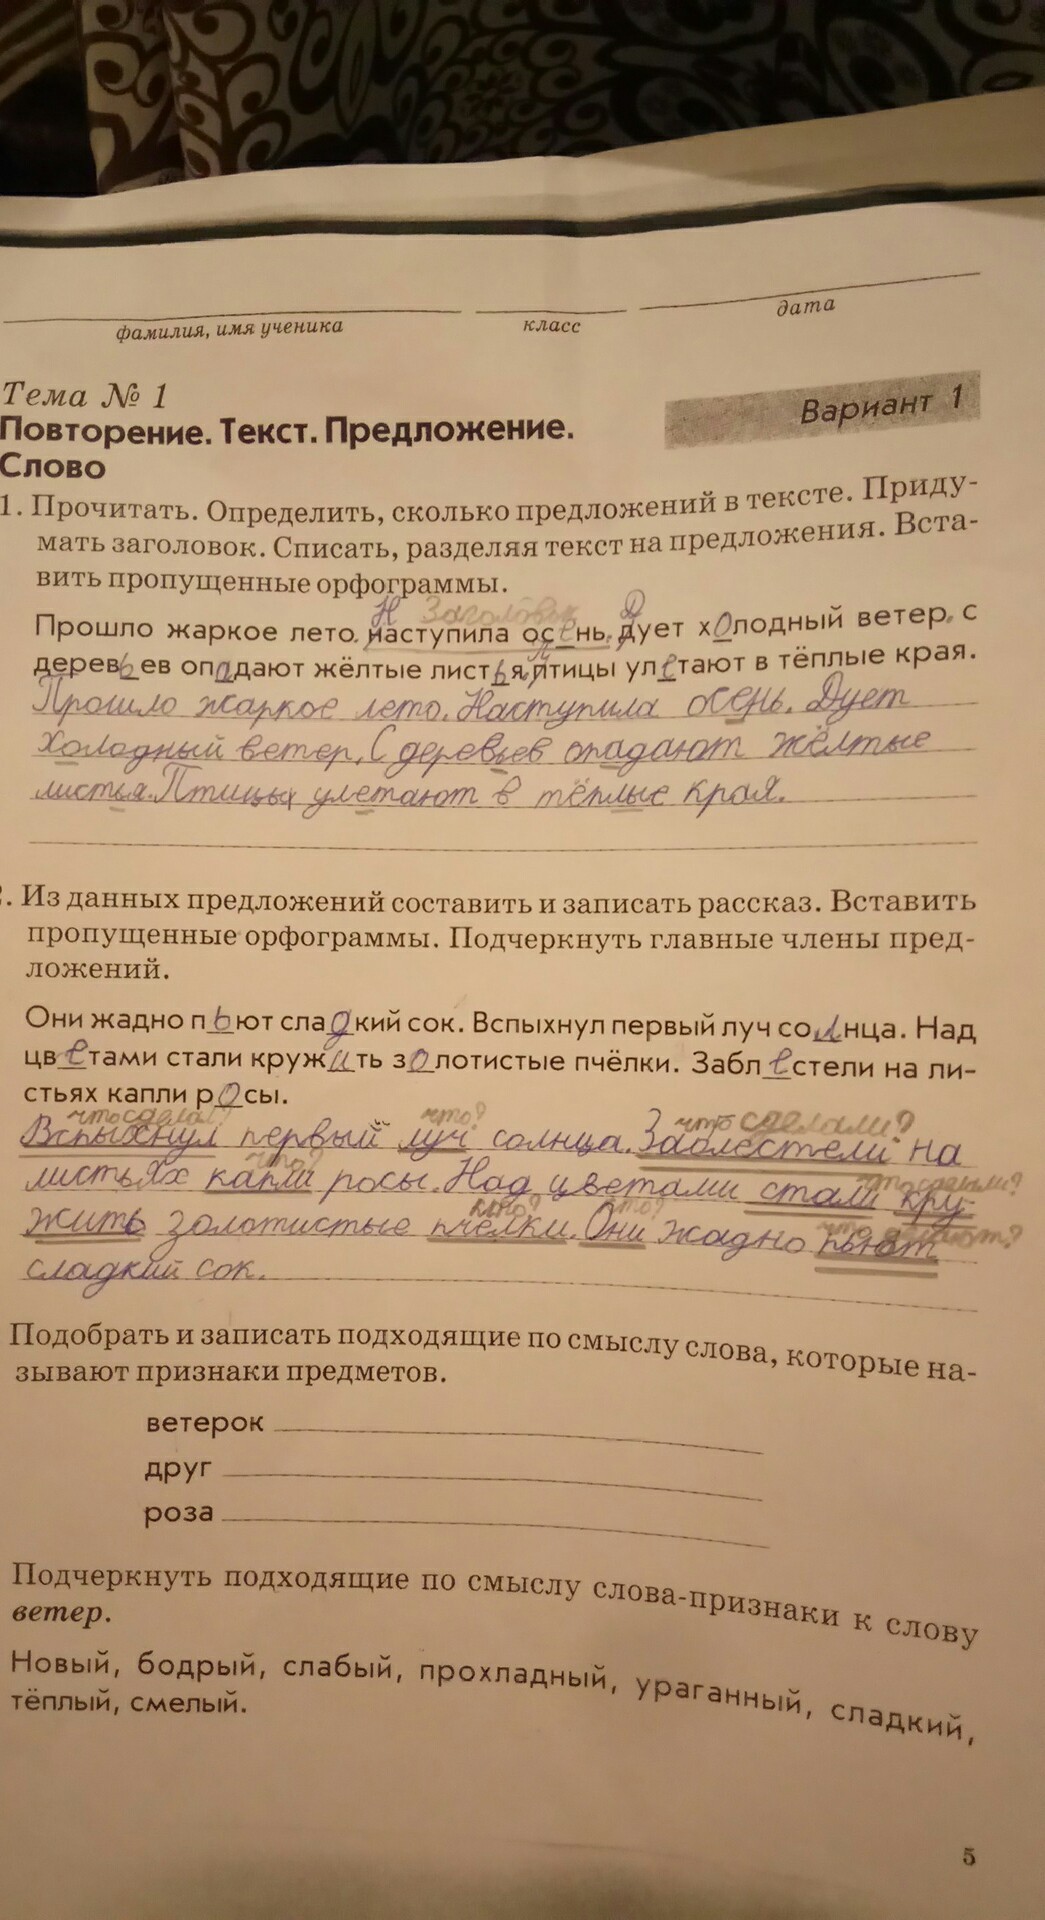 фамилия, имя ученика класс дата
Тема № 1
Вариант 1
Повторение. Текст. Предложение.
Слово
1. Прочитать. Определить, сколько предложений в тексте. Приду-
мать заголовок. Списать, разделяя текст на предложения. Вста-
вить пропущенные орфограммы.
Н Заголовок Д
Прошло жаркое лето. наступила осень. дует холодный ветер. с
деревьев опадают жёлтые листья. П птицы улетают в тёплые края.
Прошло жаркое лето. Наступила осень. Дует
холодный ветер. С деревьев опадают жёлтые
листья. Птицы улетают в тёплые края.
2. Из данных предложений составить и записать рассказ. Вставить
пропущенные орфограммы. Подчеркнуть главные члены пред-
ложений.
Они жадно пьют сладкий сок. Вспыхнул первый луч солнца. Над
цветами стали кружить золотистые пчёлки. Заблестели на ли-
стьях капли росы.
что сделал? что? что сделали?
Вспыхнул первый луч солнца. Заблестели на
что? что сделали?
листьях капли росы. Над цветами стали кру-
кто? кто? что делают?
жить золотистые пчёлки. Они жадно пьют
сладкий сок.
Подобрать и записать подходящие по смыслу слова, которые на-
зывают признаки предметов.
ветерок
друг
роза
Подчеркнуть подходящие по смыслу слова-признаки к слову
ветер.
Новый, бодрый, слабый, прохладный, ураганный, сладкий,
тёплый, смелый.
5